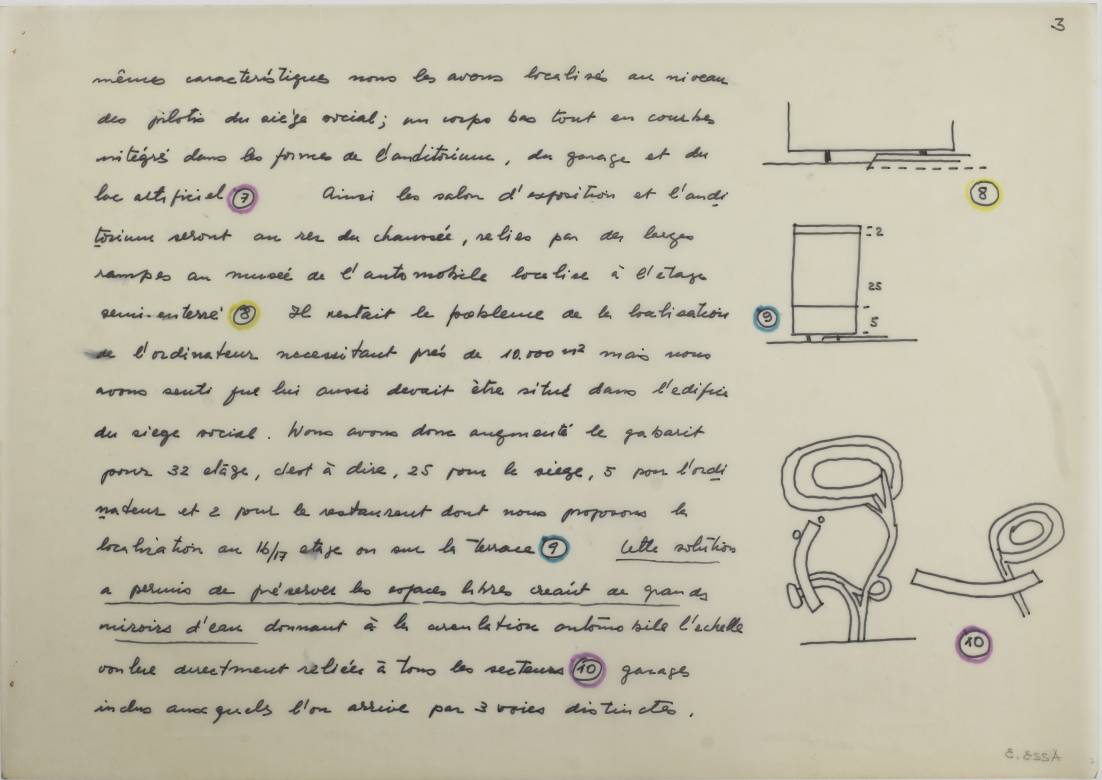 3
mêmes caractéristiques nous les avons localisés au niveau
des pilotis du siège social; un corps bas tout en courbes
intégré dans les formes de l'auditorium, du garage et du
lac artificiel 7 Ainsi les salon d'exposition et l'audi
torium seront au rez du chaussée, relies par des larges
rampes au museé de l'automobile localise à l'étage
semi-enterré 8 Il restait le probleme de la localisation
de l'ordinateur necessitant près de 10.000 m² mais nous
avons senti que lui aussi devait être situé dans l'edifice
du siege social. Nous avons donc augmenté le gabarit
pour 32 etâge, c'est à dire, 25 pour le siege, 5 pour l'ordi
nateur et 2 pour le restaurent dont nous proposons la
localization au 16/17 etage ou sur la terrace 9 Cette solution
a permis de préserver les espaces libres creant de grands
miroirs d'eau donnant à la circulation automobile l'echelle
voulue directment reliée à tous les secteurs 10 garages
inclus auxquels l'on arrive par 3 voies distinctes.
8
2
25
5
9
10